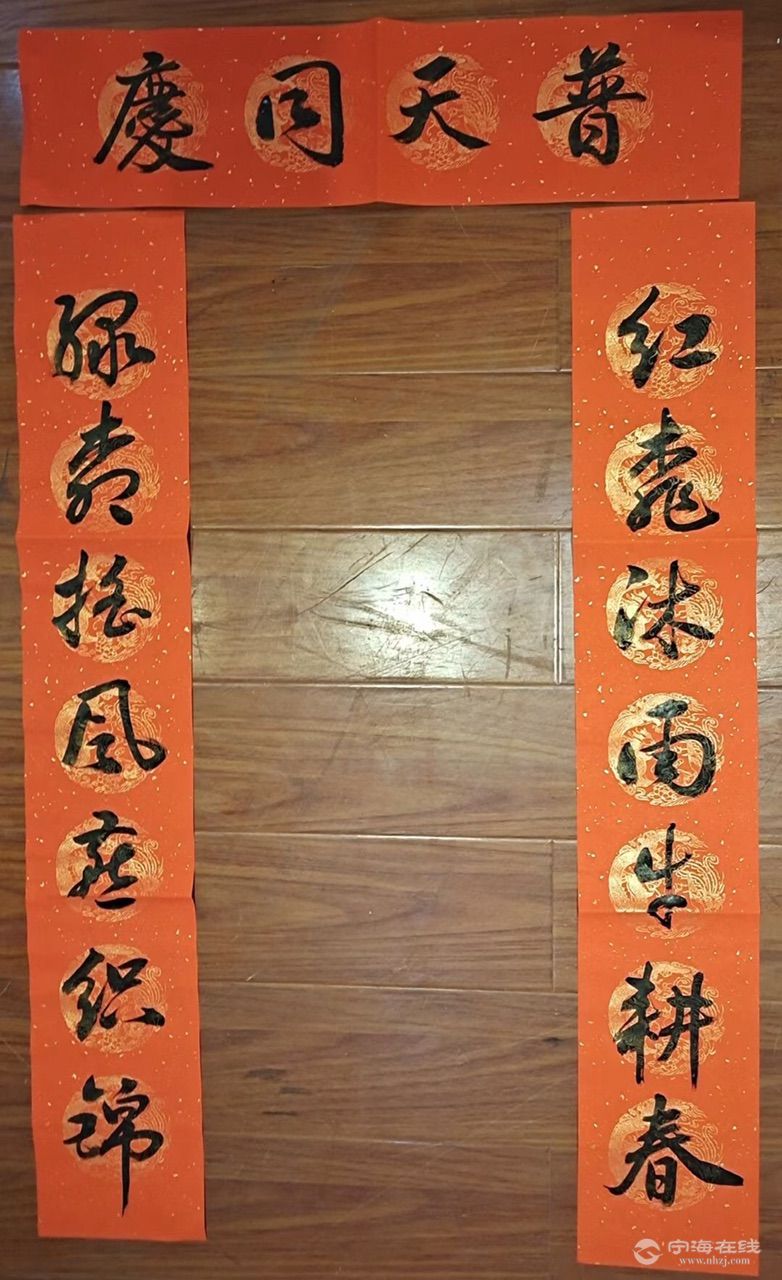 普天同慶
红桃沐雨牛耕春
绿柳摇风燕织锦
宁海在线
www.nhzj.com